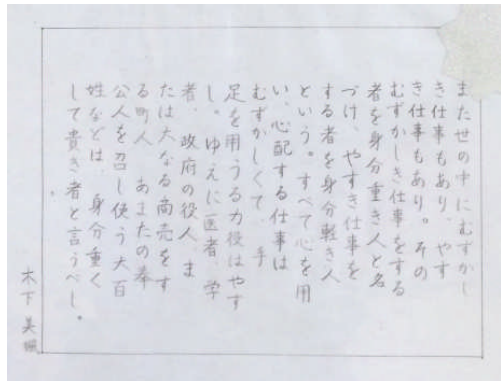 また世の中にむずかし
き仕事もあり、やす
き仕事もあり。その
むずかしき仕事をする
者を身分重き人と名
づけ、やすき仕事を
する者を身分軽き人
という。すべて心を用
い、心配する仕事は
むずかしくて、手
足を用うる力役はやす
し。ゆえに医者、学
者、政府の役人、ま
たは大なる商売をす
る町人、あまたの奉
公人を召し使う大百
姓などは、身分重く
して貴き者と言うべし。
木下 美